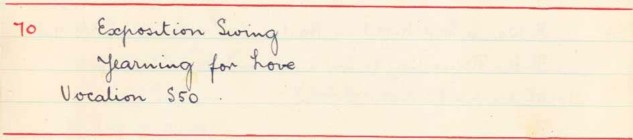 70 Exposition Swing
Yearning for Love
Vocalion S50.